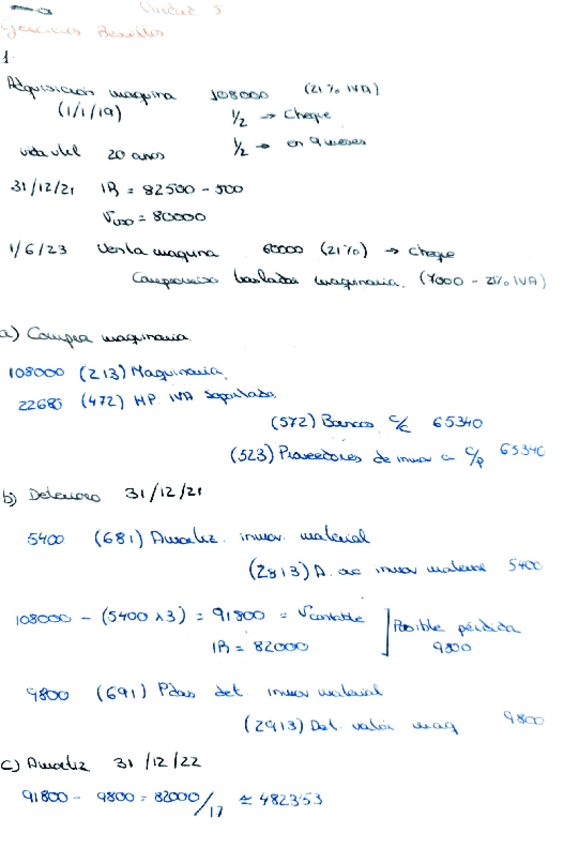 Unidad 5
Ejercicios Resueltos
1.
Adquisición maquina 108000 (21% IVA)
(1/1/19) 1/2 → Cheque
vida util 20 anos 1/2 → en 9 meses
31/12/21 IR = 82500 - 500
Vuso = 80000
1/6/23 Venta maquina 60000 (21%) → cheque
Compromiso trasladar maquinaria. (7000 - 21% IVA)
a) Compra maquinaria
108000 (213) Maquinaria,
22680 (472) HP IVA Soportado,
(572) Bancos c/c 65340
(523) Proveedores de inmov a c/p 65340
b) Deterioro 31/12/21
5400 (681) Amortiz. inmov. material
(2813) A. ac inmov material 5400
108000 - (5400 x3) = 91800 = Vcontable
IR = 82000
Posible pérdida
9800
9800 (691) Pdas det. inmov material
(2913) Det. valor maq 9800
c) Amortiz 31/12/22
91800 - 9800 = 82000/17 ≈ 4823'53